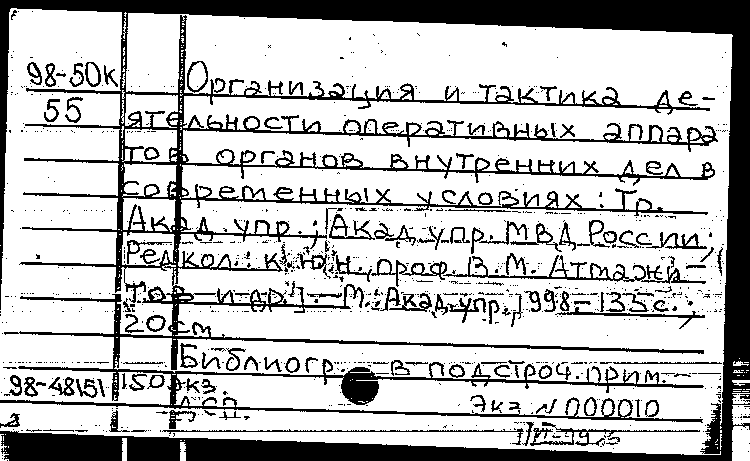 98-50к Организация и тактика де-
55 ятельности оперативных аппара
тов органов внутренних дел в
современных условиях: Тр.
Акад. упр.; [Акад. упр. МВД России;
Редкол.: к.ю.н., проф. В.М. Атмажи-
тов и др.]. - М.: Акад. упр., 1998. - 135с.;
20см.
Библиогр. в подстроч. прим. -
98-48151 150экз.
ДСП. Экз N 000010